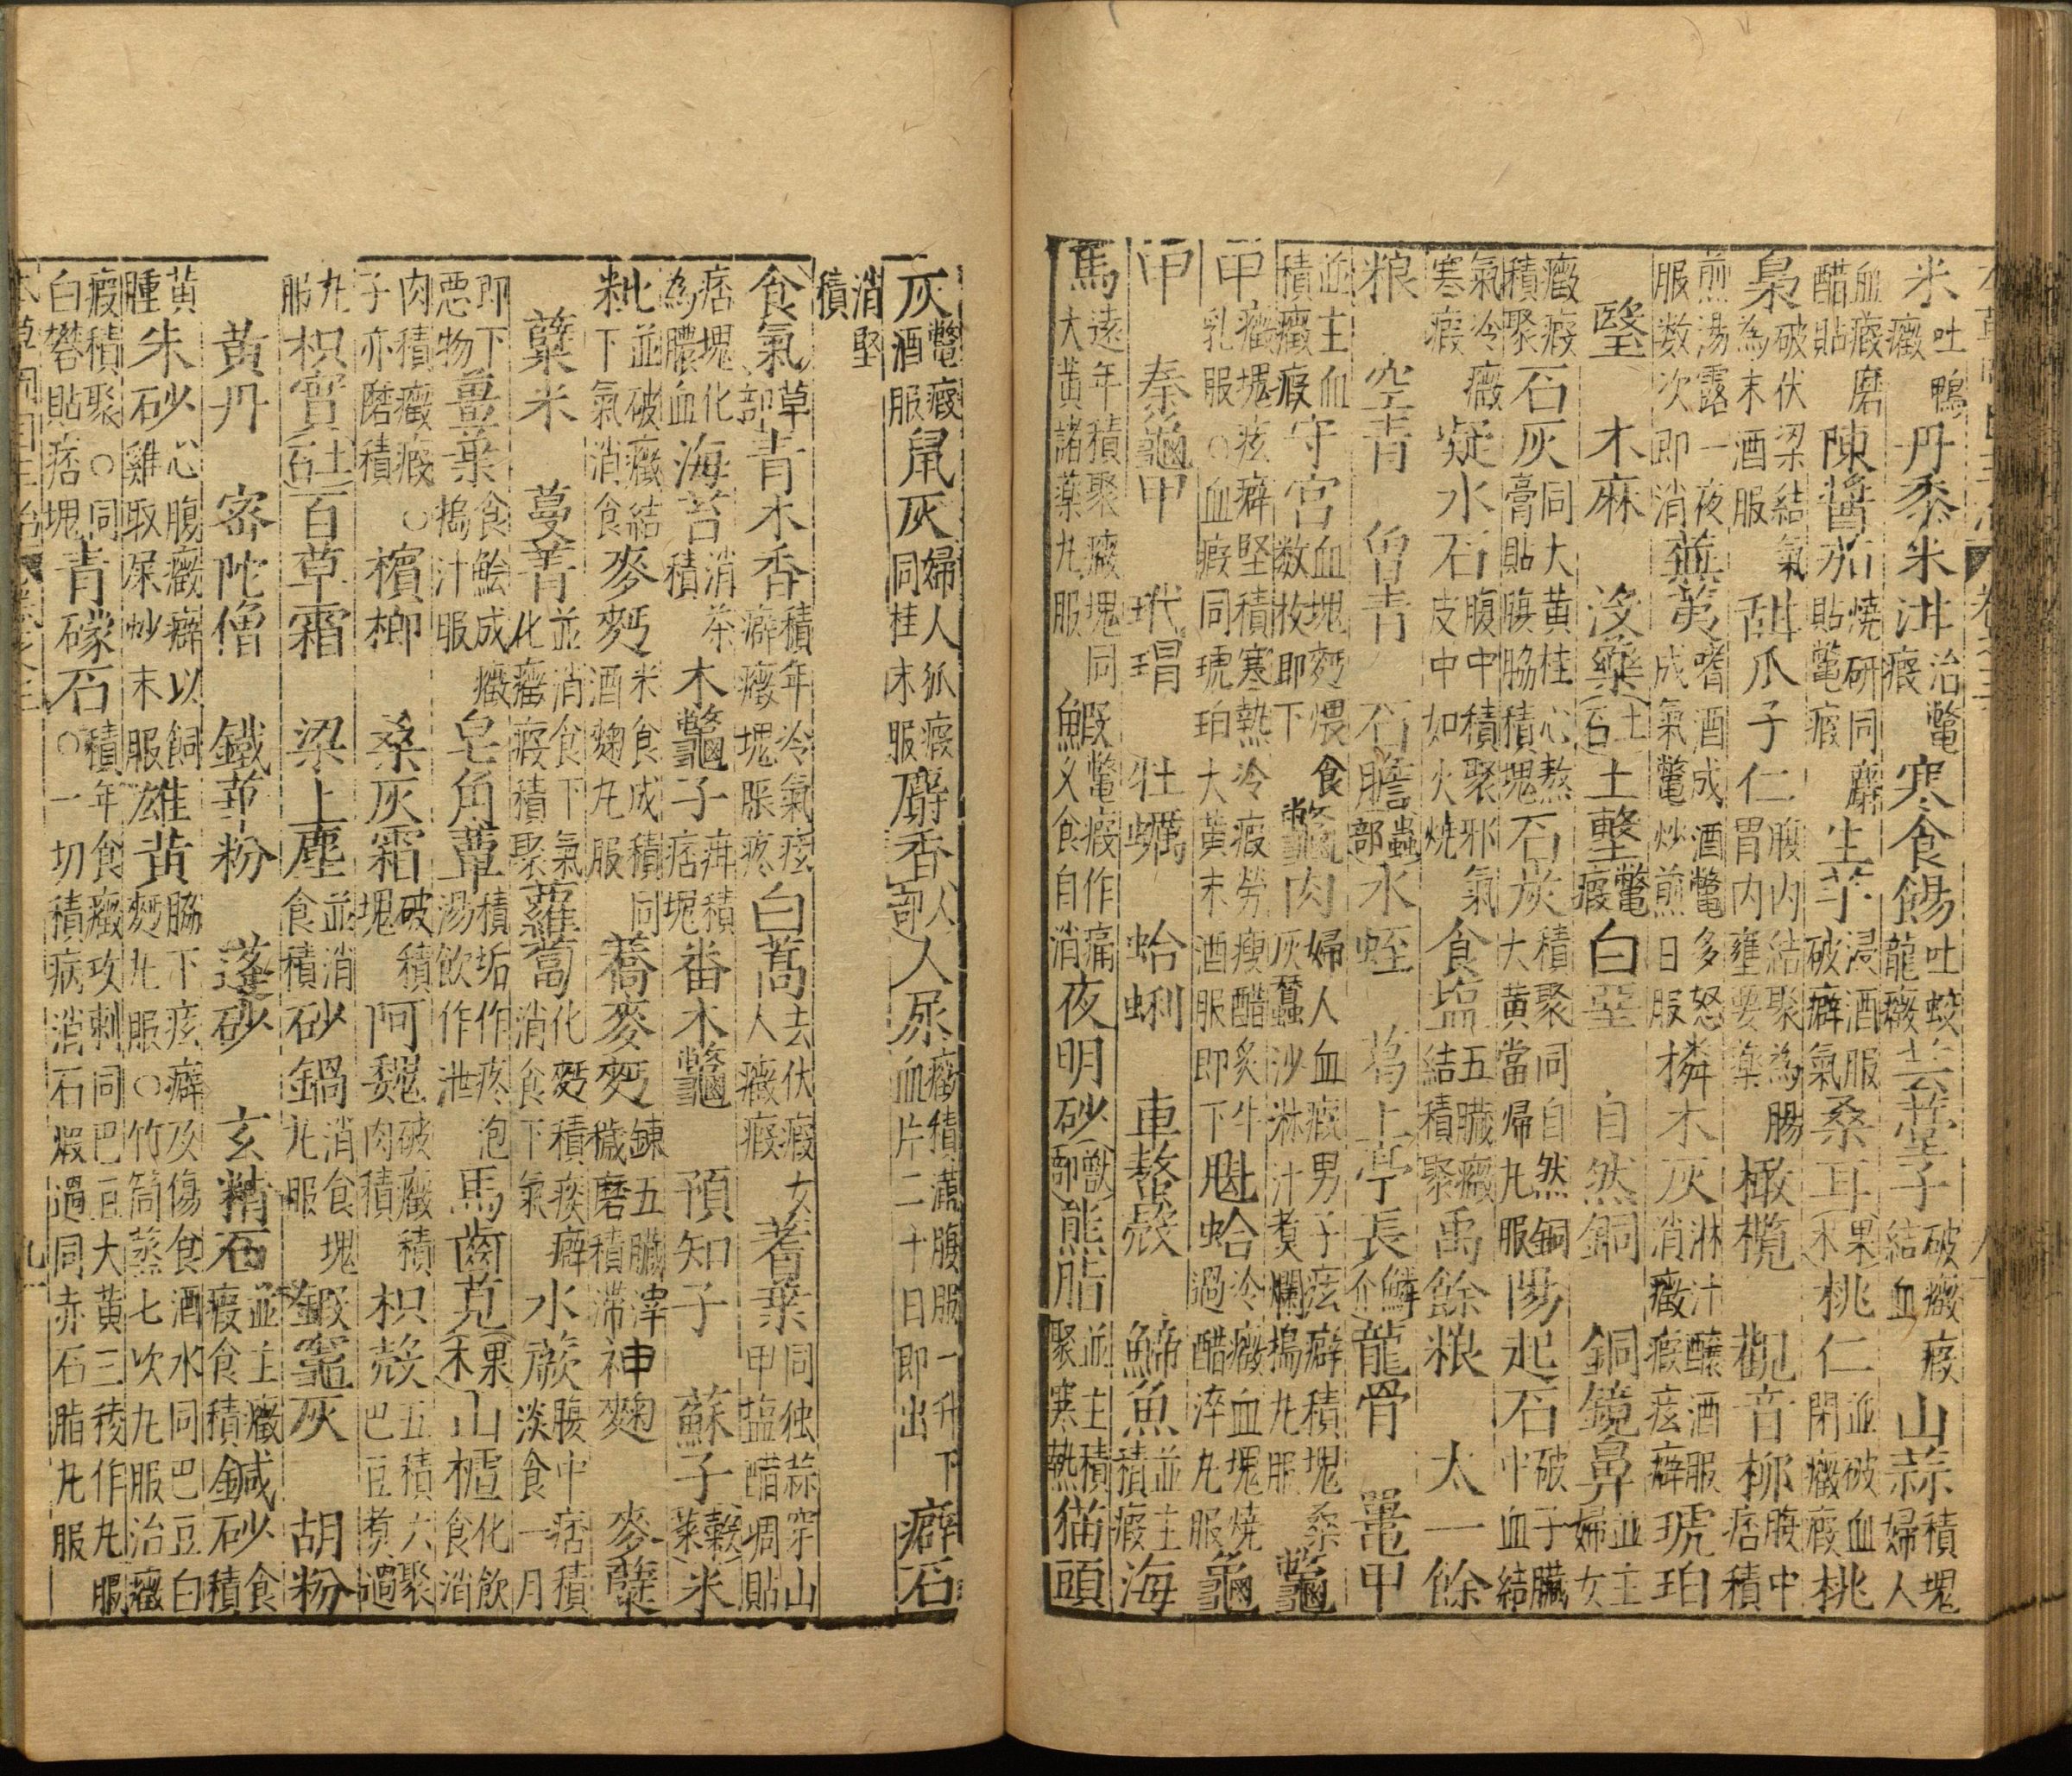 米吐鴨癥丹黍米泔治鼈瘕寒食餳吐蛟龍癥芸薹子破癥瘕結血山蒜積塊婦人
血瘕磨醋貼陳醬茄燒研同麝貼鼈瘕生芋浸酒服破癖氣桑耳果木桃仁並破血閉癥瘕桃
梟破伏梁結氣為末酒服甜瓜子仁腹內結聚為腸胃內壅要藥橄欖觀音柳腹中痞積
煎湯露一夜服数次即消蕪荑嗜酒成酒鼈多怒成氣鼈炒煎日服橉木灰淋汁釀酒服消癥瘕痃癖琥珀
瑿木麻沒藥土石土墼鼈瘕白堊自然銅銅鏡鼻並主婦女
癥瘕積聚石灰同大黃桂心熬膏貼腹脇積塊石炭積聚同自然銅大黃當歸丸服陽起石破子臟中血結
氣冷癥寒瘕凝水石腹中積聚邪氣皮中如火燒食塩五臟癥結積聚禹餘粮太一餘
粮空青曾青石膽蟲部水蛭葛上亭長鱗介龍骨鼉甲
並主血積癥瘕守宮血塊麪煨食数枚即下鼈肉婦人血瘕男子痃癖積塊桑灰蠶沙淋汁煑爛搗丸服鼈
甲癥塊痃癖堅積寒熱冷瘕勞瘦醋炙牛乳服○血瘕同琥珀大黃末酒服即下魁蛤冷癥血塊燒過醋淬丸服龜
甲秦龜甲玳瑁牡蠣蛤蜊車螯殼鰤魚並主積瘕海
馬遠年積聚癥塊同大黃諸藥丸服鰕鼈瘕作痛久食自消夜明砂獸部熊脂並主積聚寒熱猫頭
灰鼈瘕酒服鼠灰婦人狐瘕同桂末服麝香人部人尿癥積滿腹服一升下血片二十日即出癖石
消堅積
食氣草部青木香積年冷氣痃癖癥塊脹疼白蒿去伏瘕女人癥瘕蓍葉同独蒜穿山甲塩醋調貼
痞塊化為膿血海苔消茶積木鼈子疳積痞塊番木鼈預知子蘇子穀菜米
粃並破癥結下氣消食麥麪米食成積同酒麴丸服蕎麥麪鍊五臟滓穢磨積滯神麴麥糵
糵米蔓菁並消食下氣化癥瘕積聚蘿蔔化麪積痰癖消食下氣水蕨腹中痞積淡食一月
即下惡物薑葉食鱠成癥搗汁服皂角蕈積垢作疼泡湯飲作泄馬齒莧果木山樝化飲食消
肉積癥瘕○子亦磨積檳榔桑灰霜破積塊阿魏破癥積肉積枳殼五積六聚巴豆煑過
丸服枳實土石百草霜梁上塵並消食積砂鍋消食塊丸服鍛竈灰胡粉
黃丹密陀僧鐵華粉蓬砂玄精石並主癥瘕食積鹹砂食積
黃腫朱砂心腹癥癖以飼雞取屎炒末服雄黃脇下痃癖及傷食酒水同巴豆白麪丸服○竹筒蒸七次丸服治癥
瘕積聚○同白礬貼痞塊青礞石積年食癥攻刺同巴豆大黃三稜作丸服○一切積病消石煅過同赤石脂丸服